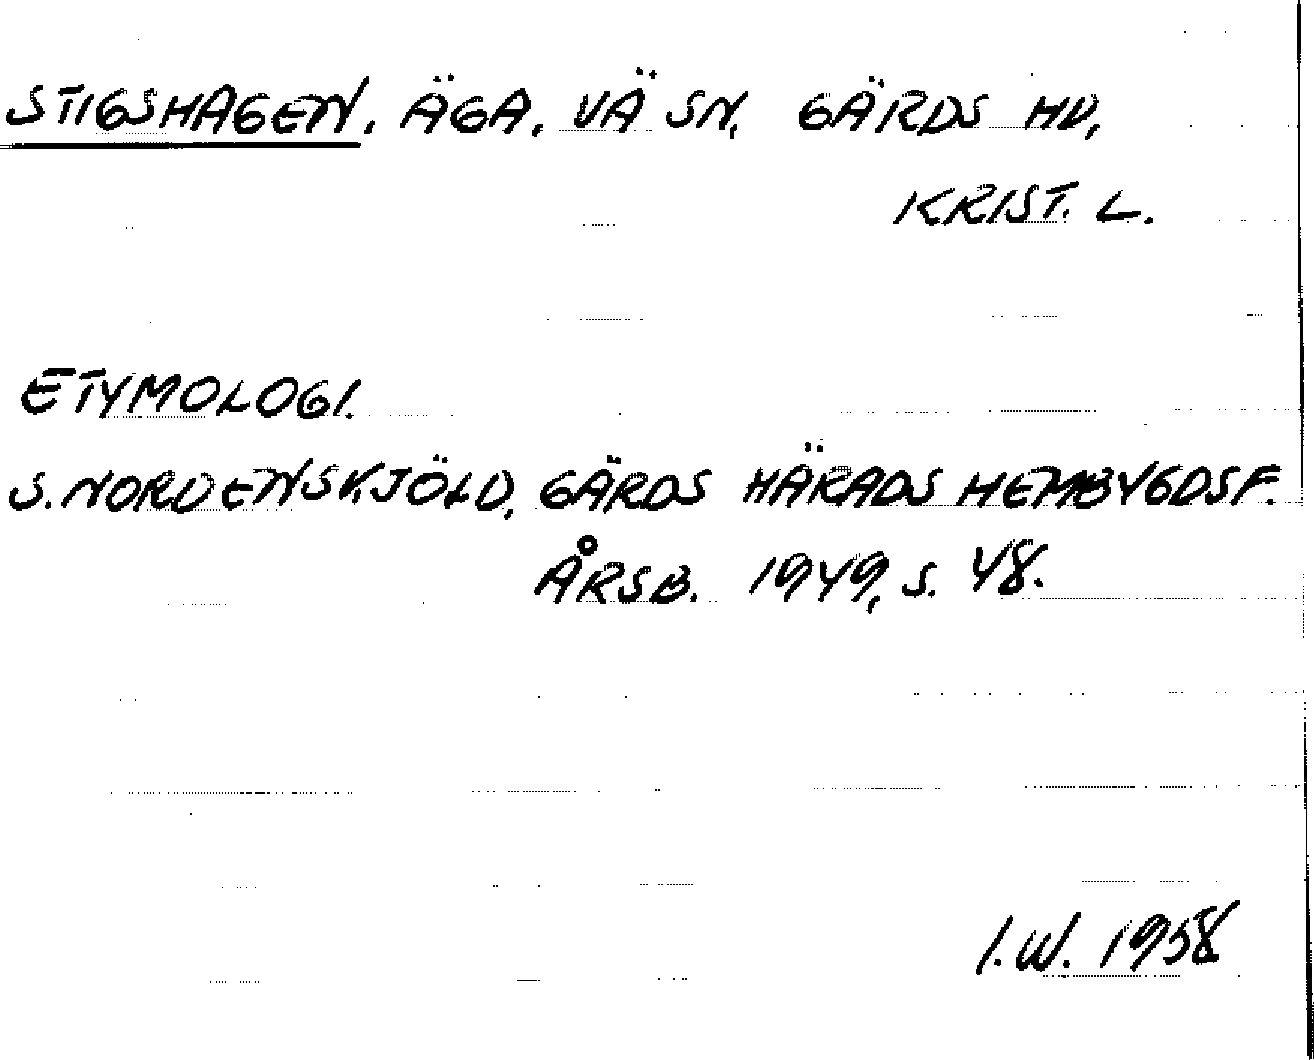 STIGSHAGEN. ÄGA. VÄ SN. GÄRDS HD,
KRIST. L.
ETYMOLOGI.
S. NORDENSKJÖLD, GÄRDS HÄRADS HEMBYGDSF.
ÅRSB. 1949, S. 48.
I.W. 1958